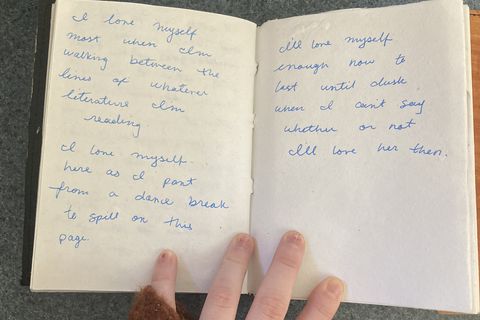 I love myself
most when I'm
walking between the
lines of whatever
literature I'm
reading
I love myself
here as I pant
from a dance break
to spill on this
page.
I'll love myself
enough now to
last until dusk
when I can't say
whether or not
I'll love her then.